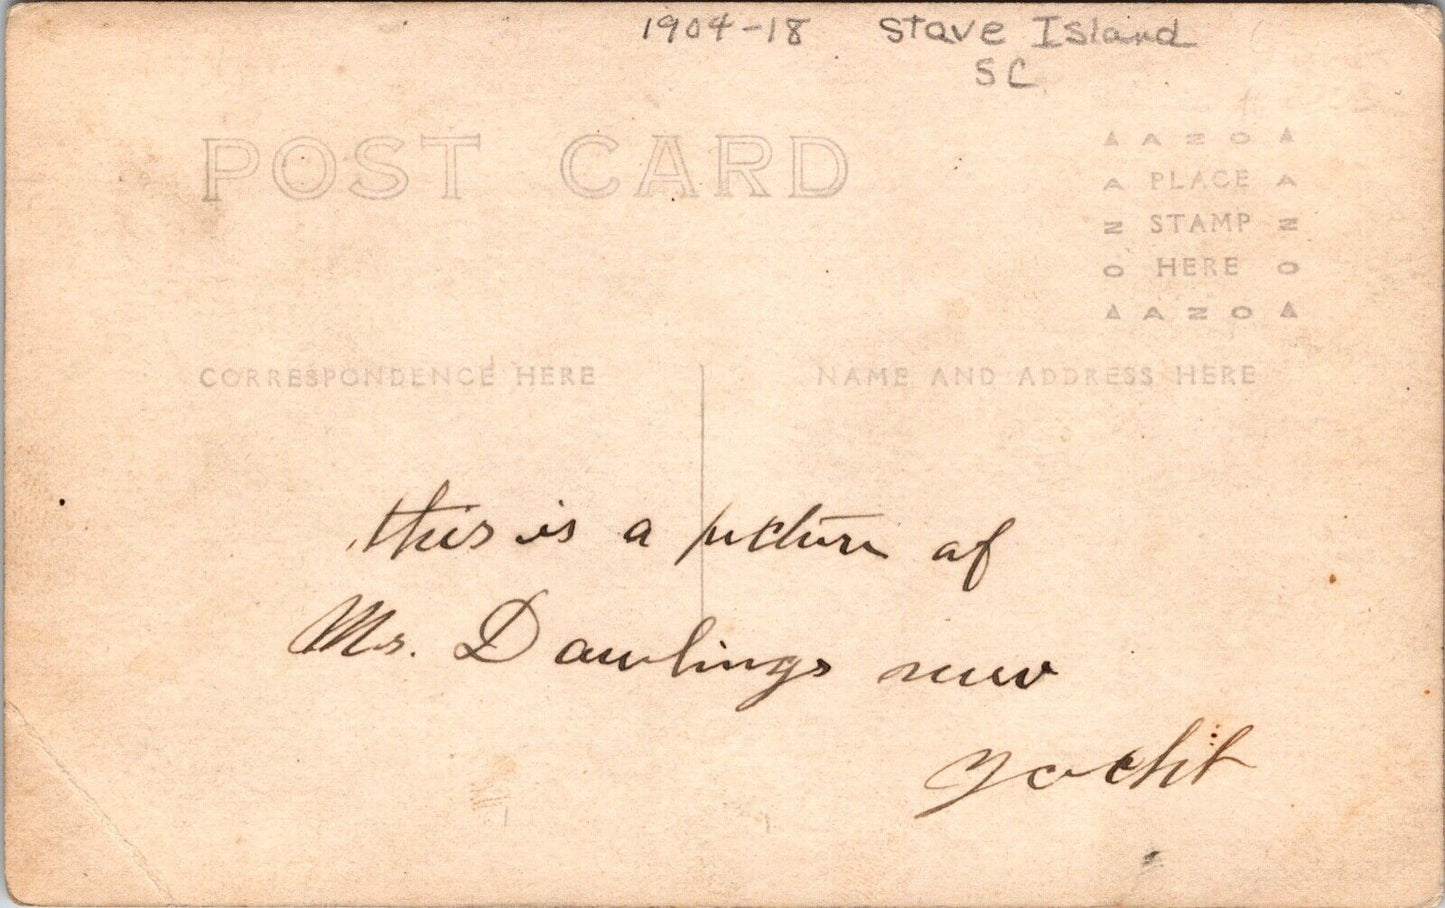 1904-18 Stave Island
SC
POST CARD
▲ A Z O ▲
A PLACE A
N STAMP N
O HERE O
▲ A Z O ▲
CORRESPONDENCE HERE
NAME AND ADDRESS HERE
this is a picture of
Mr. Dawlings new
Yacht